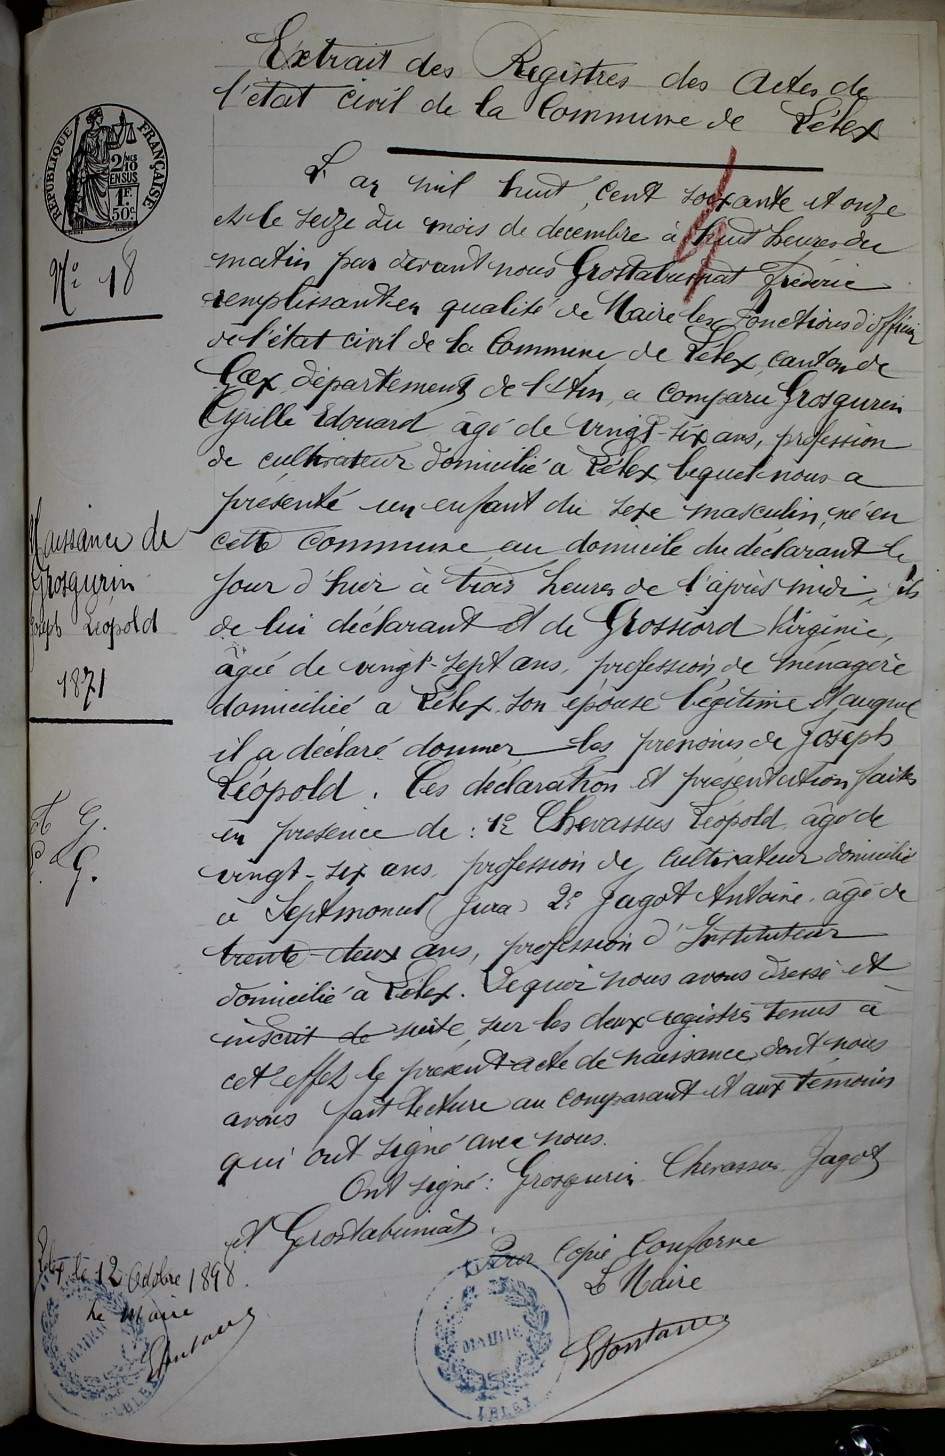 Extrait des Registres des Actes de
l'état civil de la Commune de Lélex
RÉPUBLIQUE FRANÇAISE
2/10 EN SUS
1F. 50c
N° 18
L'an mil huit cent soixante et onze
et le seize du mois de décembre à huit heures du
matin par devant nous Grostabussiat Fréderic
remplissant en qualité de Maire les fonctions d'officier
de l'état civil de la Commune de Lélex, canton de
Gex, département de l'Ain, a comparu Grosgurin
Cyrille Edouard âgé de vingt-six ans, profession
de cultivateur domicilié à Lélex, lequel nous a
présenté un enfant du sexe masculin, né en
cette commune au domicile du déclarant le
jour d'hier à trois heures de l'après midi, fils
de lui déclarant et de Grossiord Virginie,
âgée de vingt-sept ans, profession de ménagère
domiciliée à Lélex, son épouse légitime et auquel
il a déclaré donner les prénoms de Joseph
Léopold. Ces déclaration et présentation faites
en présence de : 1° Chevassus Léopold âgé de
vingt-six ans, profession de cultivateur domicilié
à Septmoncel (Jura) 2° Jagot Antoine, âgé de
trente-deux ans, profession d'Instituteur
domicilié à Lélex. De quoi nous avons dressé et
inscrit de suite, sur les deux registres tenus à
cet effet le présent acte de naissance dont nous
avons fait lecture au comparant et aux témoins
qui ont signé avec nous.
Ont signé : Grosgurin Chevassus Jagot
et Grostabussiat.
Pour Copie Conforme
Le Maire
Naissance de
Grosgurin
Joseph Léopold
1871
G.
G.
Lélex, le 12 Octobre 1898.
Le Maire
MAIRIE
LÉLEX
MAIRIE
LÉLEX